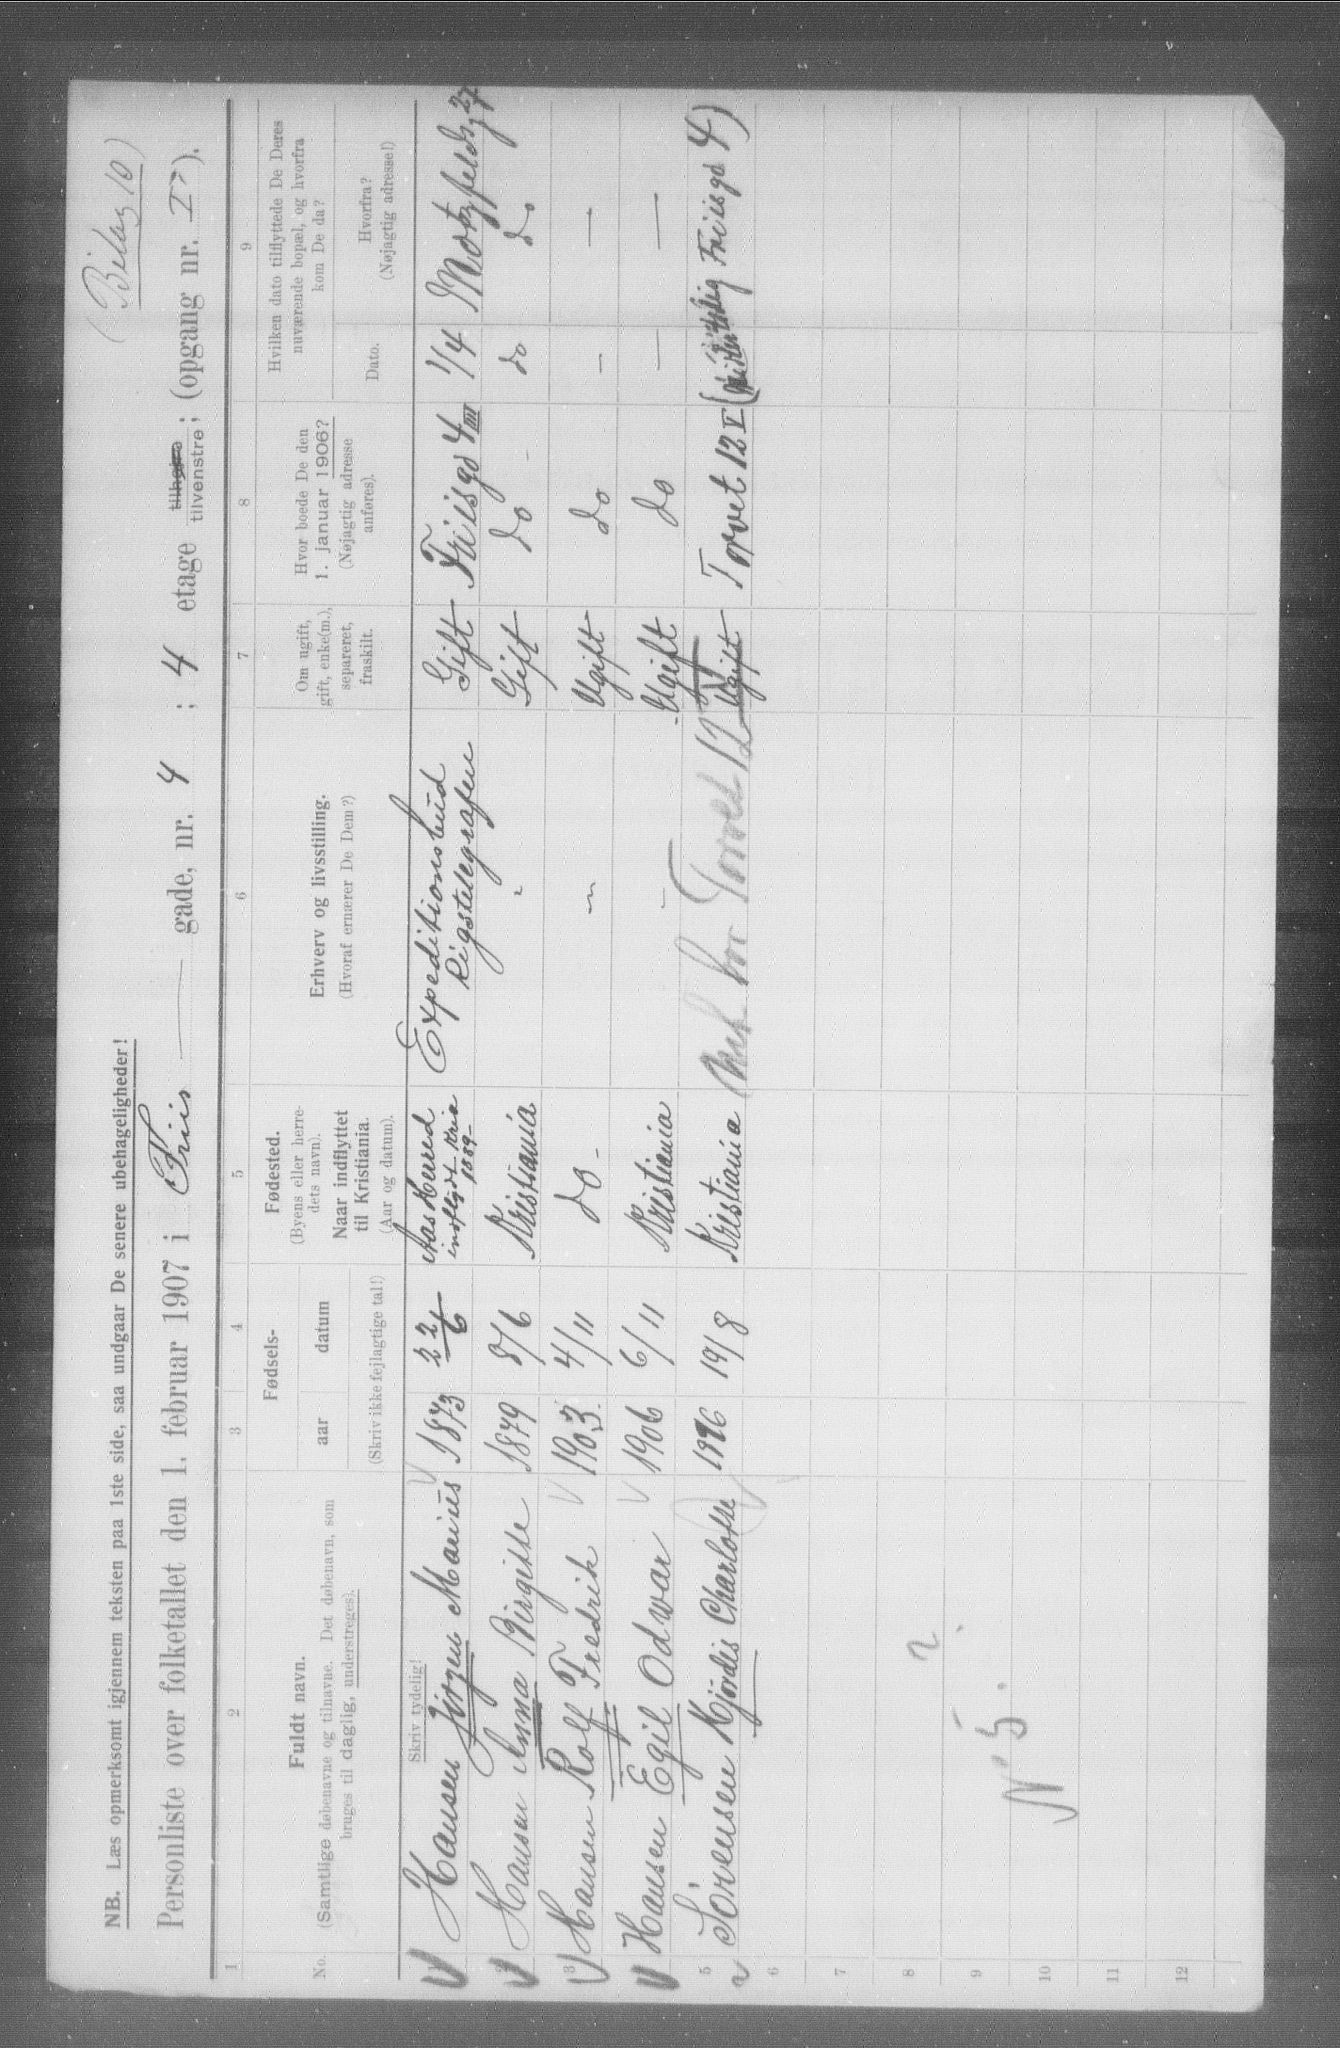 (Bilag 10)
NB. Læs opmerksomt igjennem teksten paa 1ste side, saa undgaar De senere ubehageligheder!
Personliste over folketallet den 1. februar 1907 i Friis gade, nr. 4 ; 4 etage tilhøjre tilvenstre ; (opgang nr. I ).
1 2 3 4 5 6 7 8 9
No.
Fuldt navn.
(Samtlige døbenavne og tilnavne. Det døbenavn, som
bruges til daglig, understreges).
Skriv tydelig!
Fødsels-
aar datum
(Skriv ikke fejlagtige tal!)
Fødested.
(Byens eller herre-
dets navn).
Naar indflyttet
til Kristiania.
(Aar og datum).
Erhverv og livsstilling.
(Hvoraf ernærer De Dem?)
Om ugift,
gift, enke(m.),
separeret,
fraskilt.
Hvor boede De den
1. januar 1906?
(Nøjagtig adresse
anføres).
Hvilken dato tilflyttede De Deres
nuværende bopæl, og hvorfra
kom De da?
Dato.
Hvorfra?
(Nøjagtig adresse!)
1 Hansen Jörgen Marius 1873 22/6 Aas Herred indflydt Kria 1889- Expeditionsbud Rigstelegrafen Gift Friisgd 4 III 1/4 Motzfeldsg 27
2 Hansen Anna Birgitte 1879 8/6 Kristiania - Gift do do do
3 Hansen Rolf Fredrik 1903 4/11 do - - Ugift do - -
4 Hansen Egil Odvar 1906 6/11 Kristiania - Ugift do - -
5 Sörensen Hjördis Charlotte 1896 19/8 Kristiania Ugift Torvet 12 V Friisgd 4)
Torvet 12
6
7
8
9
10
11
12
N° 5.